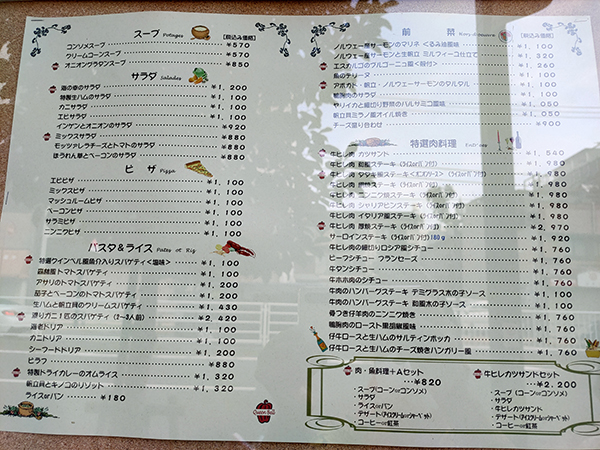 スープ Potages [税込み価格]
コンソメスープ ¥570
クリームコーンスープ ¥570
オニオングラタンスープ ¥850
サラダ Salades
海の幸のサラダ ¥1,200
特製生ハムのサラダ ¥1,100
カニサラダ ¥1,100
エビサラダ ¥1,100
インゲンとオニオンのサラダ ¥920
ミックスサラダ ¥880
モッツァレラチーズとトマトのサラダ ¥880
ほうれん草とベーコンのサラダ ¥880
ピザ Pizza
エビピザ ¥1,100
ミックスピザ ¥1,100
マッシュルームピザ ¥1,100
ベーコンピザ ¥1,100
サラミピザ ¥1,100
ニンニクピザ ¥1,100
パスタ&ライス
特選ウインベル風魚介入りスパゲティ<塩味> ¥1,100
森林風トマトスパゲティ ¥1,100
アサリのトマトスパゲティ ¥1,100
茄子とベーコンのトマトスパゲティ ¥1,100
生ハムと帆立貝のクリームスパゲティ ¥1,430
渡りガニ1匹のスパゲティ(1〜3人前) ¥2,420
海老ドリア ¥1,100
カニドリア ¥1,100
シーフードドリア ¥1,100
ピラフ ¥880
特製ドライカレーのオムライス ¥1,320
帆立貝とキノコのリゾット ¥1,320
ライスorパン ¥180
Queen Bell
前菜 [税込み価格]
ノルウェー産サーモンのマリネ<るみ油風味> ¥1,100
ノルウェー産サーモンと生帆立 ミルフィーユ仕立て ¥1,320
エスカルゴのブルゴーニュ風<殻付> ¥1,260
魚のテリーヌ ¥1,100
アボカド・帆立・ノルウェーサーモンのタルタル ¥1,100
鴨胸肉のサラダ ¥1,100
ヤリイカと細切り野菜のバルサミコ風味 ¥1,100
帆立貝ミラノ風オイル焼き ¥1,100
チーズ盛り合わせ ¥900
特選肉料理 Entrées
牛ヒレ肉 カツサンド ¥1,540
牛ヒレ肉 和風ステーキ(ライスorパン付) ¥1,980
牛ヒレ肉 マタギ風ステーキ
牛ヒレ肉 ニンニク焼ステーキ(ライスorパン付) ¥1,980
牛ヒレ肉 シャリアピンステーキ(ライスorパン付) ¥1,970
牛ヒレ肉 イタリア風ステーキ(ライスorパン付) ¥1,980
牛ヒレ肉 厚焼ステーキ(ライスorパン付) ¥2,970
サーロインステーキ(ライスorパン付)180g ¥1,980
牛ヒレ肉の細切りロシア風シチュー ¥1,760
ビーフシチュー フランセーズ ¥1,760
牛タンシチュー ¥1,760
牛ホホ肉のシチュー ¥1,760
牛肉のハンバーグステーキ デミグラス木の子ソース ¥1,100
牛肉のハンバーグステーキ 和風木の子ソース ¥1,100
骨つき仔羊肉のニンニク焼き ¥1,760
鴨胸肉のロースト黒胡椒風味 ¥1,760
仔牛ロースと生ハムのサルティンボッカ ¥1,760
仔牛ロースと生ハムのチーズ焼きハンガリー風 ¥1,760
肉・魚料理+Aセット
¥820
・スープ(コーンorコンソメ)
・サラダ
・ライスorパン
・デザート(アイスクリームorシャーベット)
・コーヒーor紅茶
牛ヒレカツサンドセット
¥2,200
・スープ(コーンorコンソメ)
・サラダ
・牛ヒレカツサンド
・デザート(アイスクリームorシャーベット)
・コーヒーor紅茶